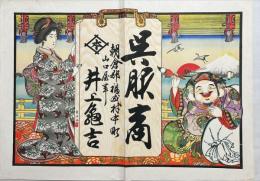 呉服商
朝倉郡福成村中町
山口屋事
井上亀吉